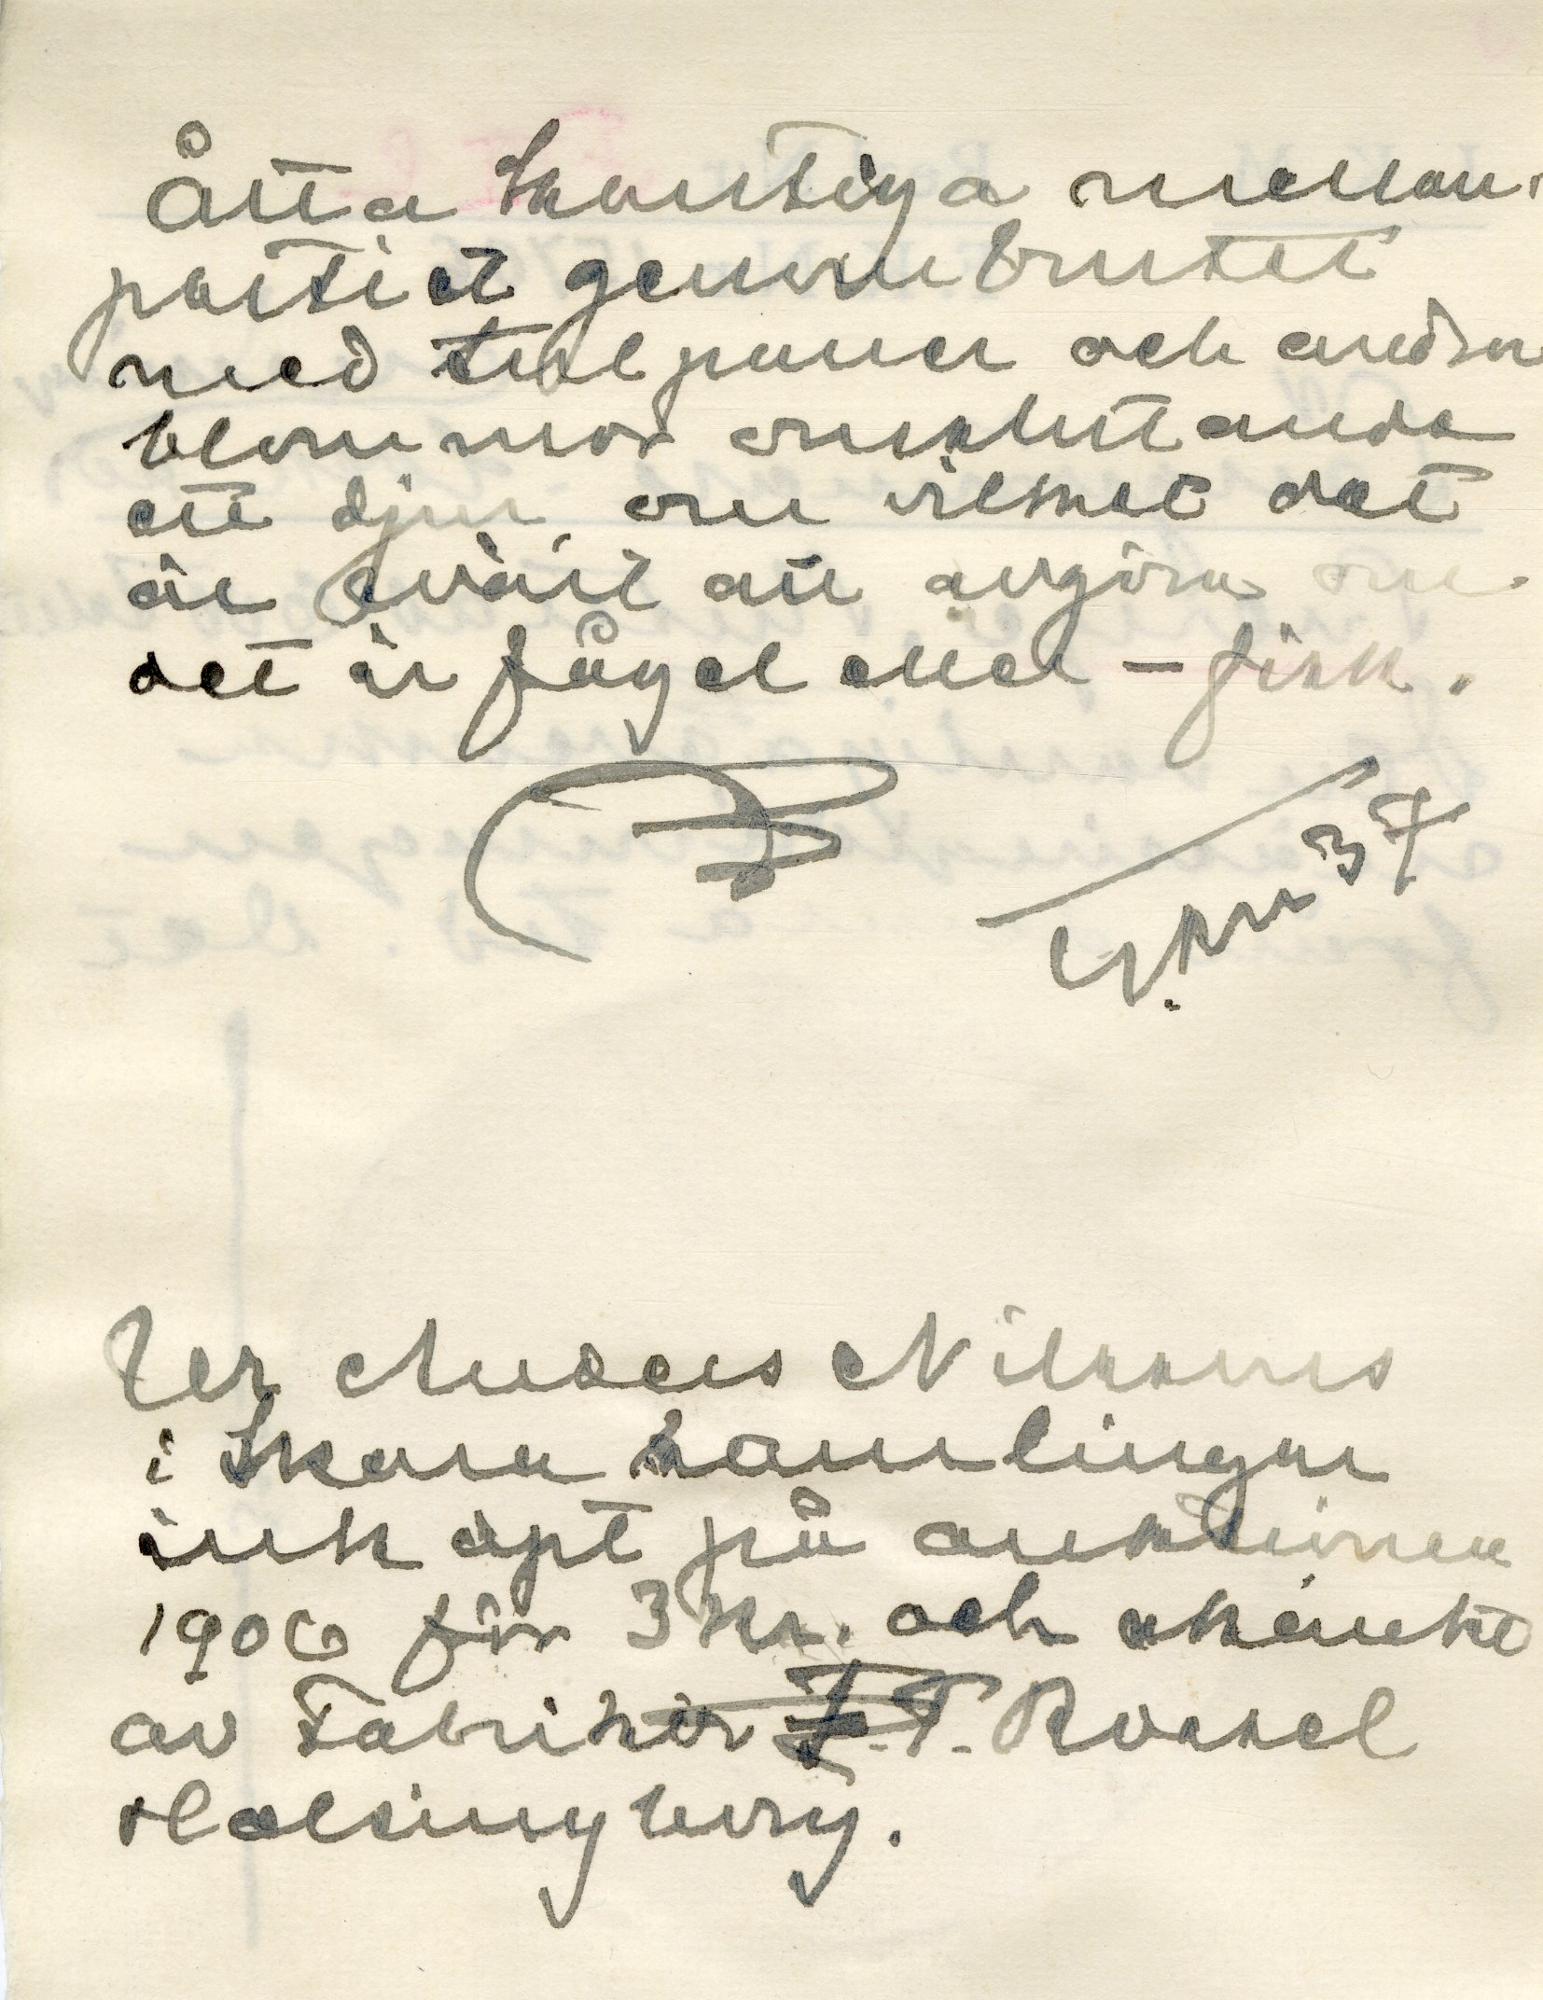 Åtta kantiga mellan-
partiet genombrutet
med tulpaner och andra
blommor omslutande
ett djur, om vilket det
är svårt att avgöra om
det är fågel eller – fisk.
37
Ur Anders Nilssons
i Skara samlingar
inköpt på auktionen
1906 för 3 kr. och skänkt
av Fabrikör F. Rossel
Hälsingborg.